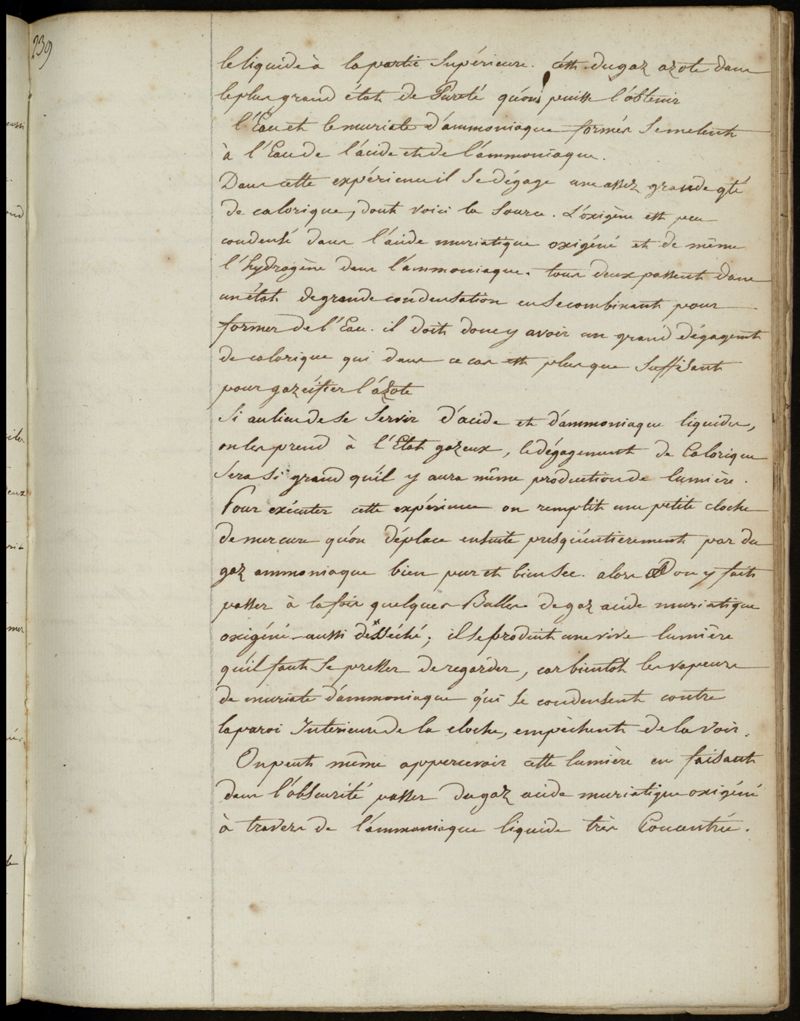 239
le liquide à la partie Supérieure. c'est du gaz azote dans
le plus grand état de Pureté qu'on puisse l'obtenir
l'Eau et le muriate d'ammoniaque formés Se melent
à l'Eau de l'acide et de l'ammoniaque.
Dans cette expérience il Se dégage une assez grande qté
de calorique, dont voici la Source. L'oxigène est peu
condensé dans l'acide muriatique oxigéné et de même
l'hydrogène dans l'ammoniaque. tous deux passent dans
un état de grande condensation en Se combinant pour
former de l'Eau. il doit donc y avoir un grand dégagemt
de calorique qui dans ce cas est plus que Suffisant
pour gazéifier l'azote
Si au lieu de Se Servir d'acide et d'ammoniaque liquides,
on les prend à l'Etat gazeux, le dégagement de Calorique
Sera Si grand qu'il y aura même production de lumière.
Pour exécuter cette expérience on remplit une petite cloche
de mercure qu'on déplace ensuite presqu'entierement par du
gaz ammoniaque bien pur et bien Sec. alors on y fait
passer à la fois quelques Bulles de gaz acide muriatique
oxigéné aussi désséché; il Se produit une vive lumière
qu'il faut Se presser de regarder, car bientôt les vapeurs
de muriate d'ammoniaque qui Se condensent contre
la paroi Intérieure de la cloche, empêchent de la voir.
On peut même appercevoir cette lumière en faisant
dans l'obscurité passer du gaz acide muriatique oxigéné
à travers de l'ammoniaque liquide très Concentrée.